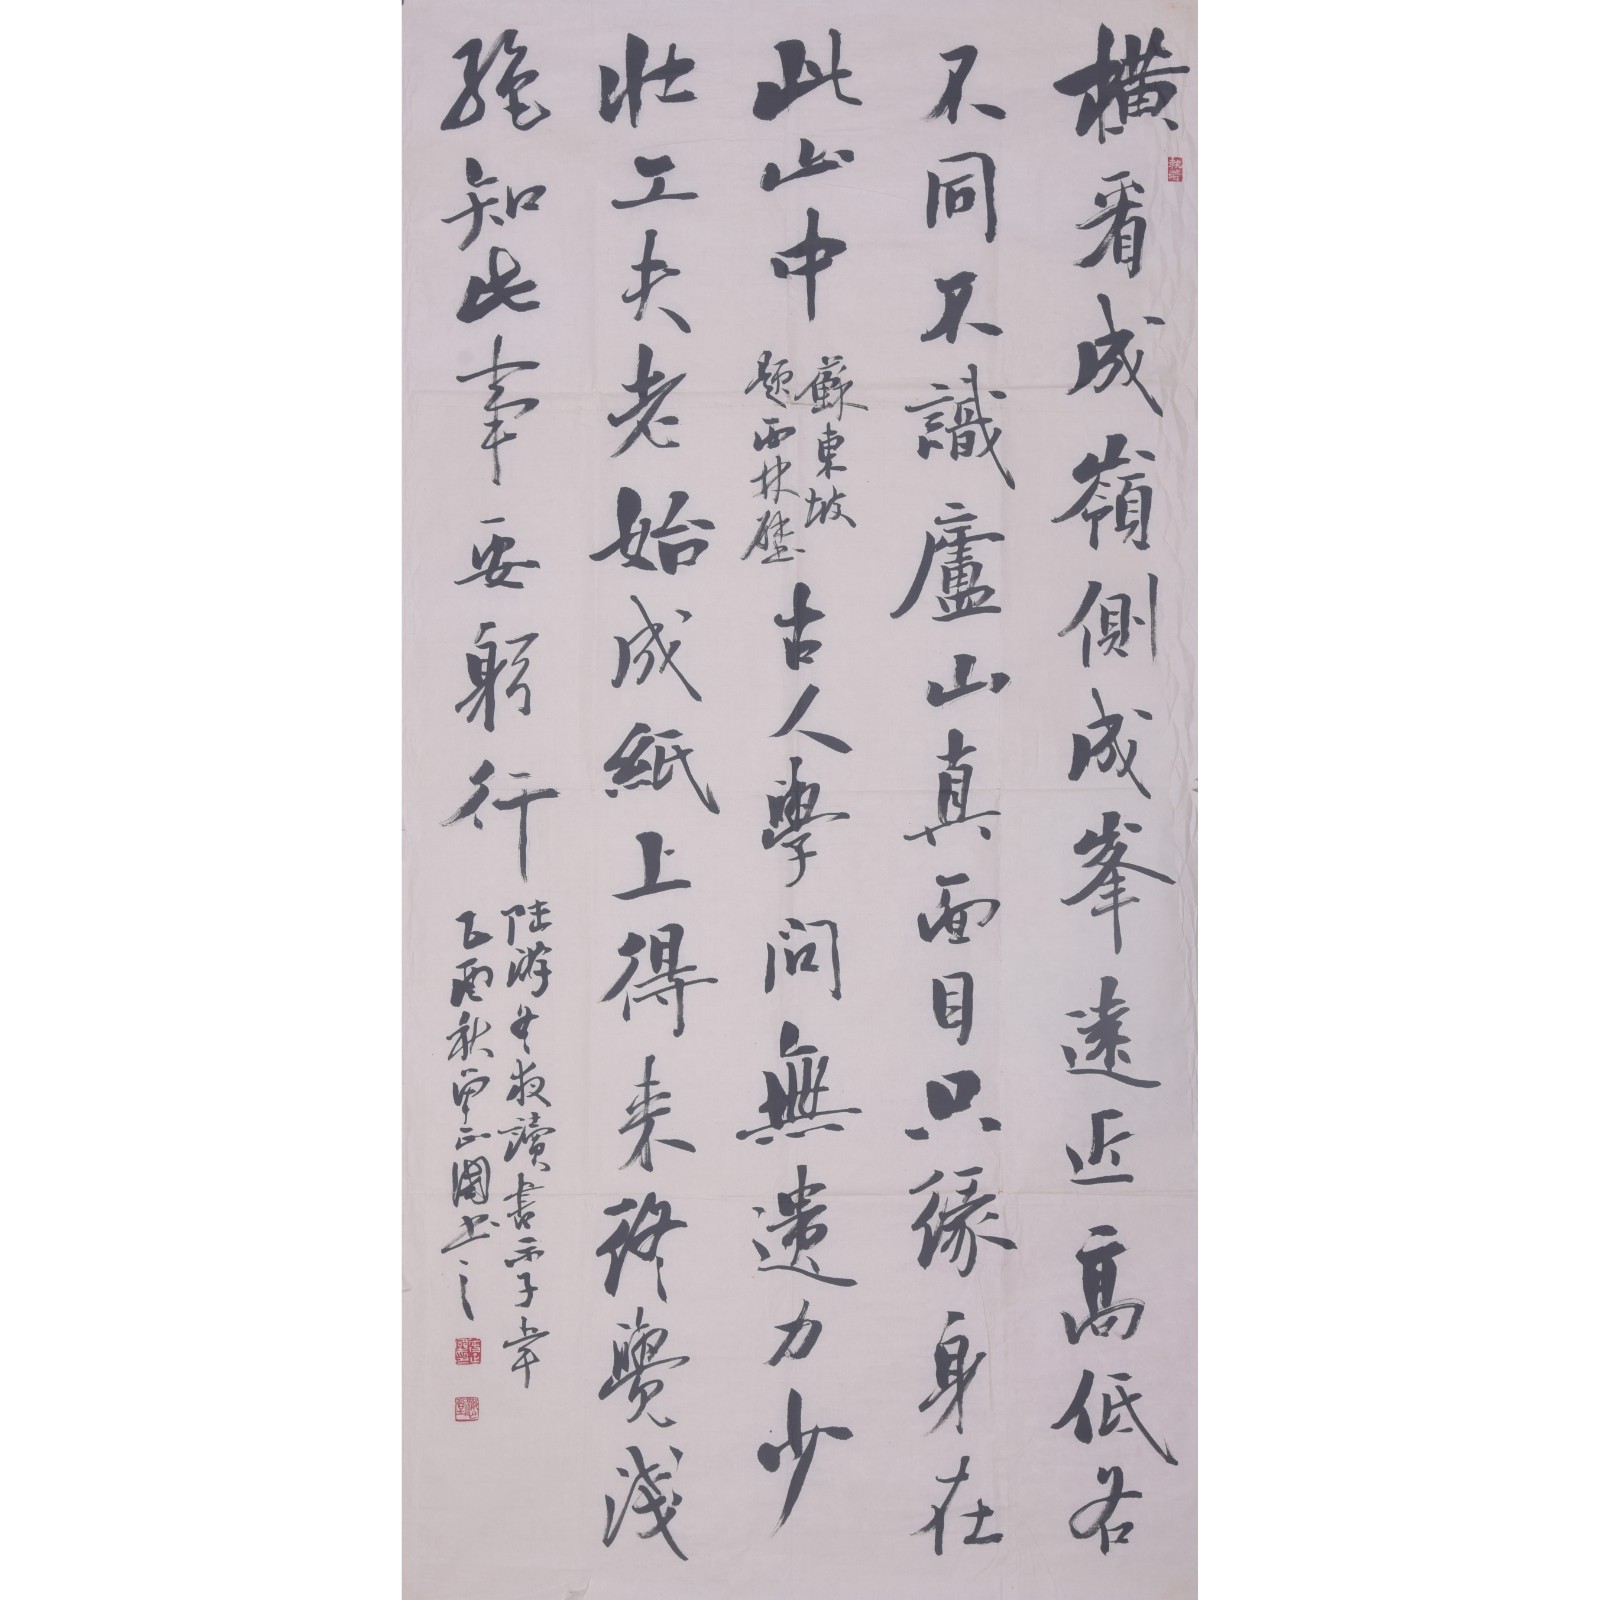 橫看成嶺側成峯遠近高低各
不同不識廬山真面目只緣身在
此山中
蘇東坡
題西林壁
古人學問無遺力少
壯工夫老始成紙上得来終覺淺
絕知此事要躬行
陸游冬夜讀書示子聿
乙酉秋正國書之